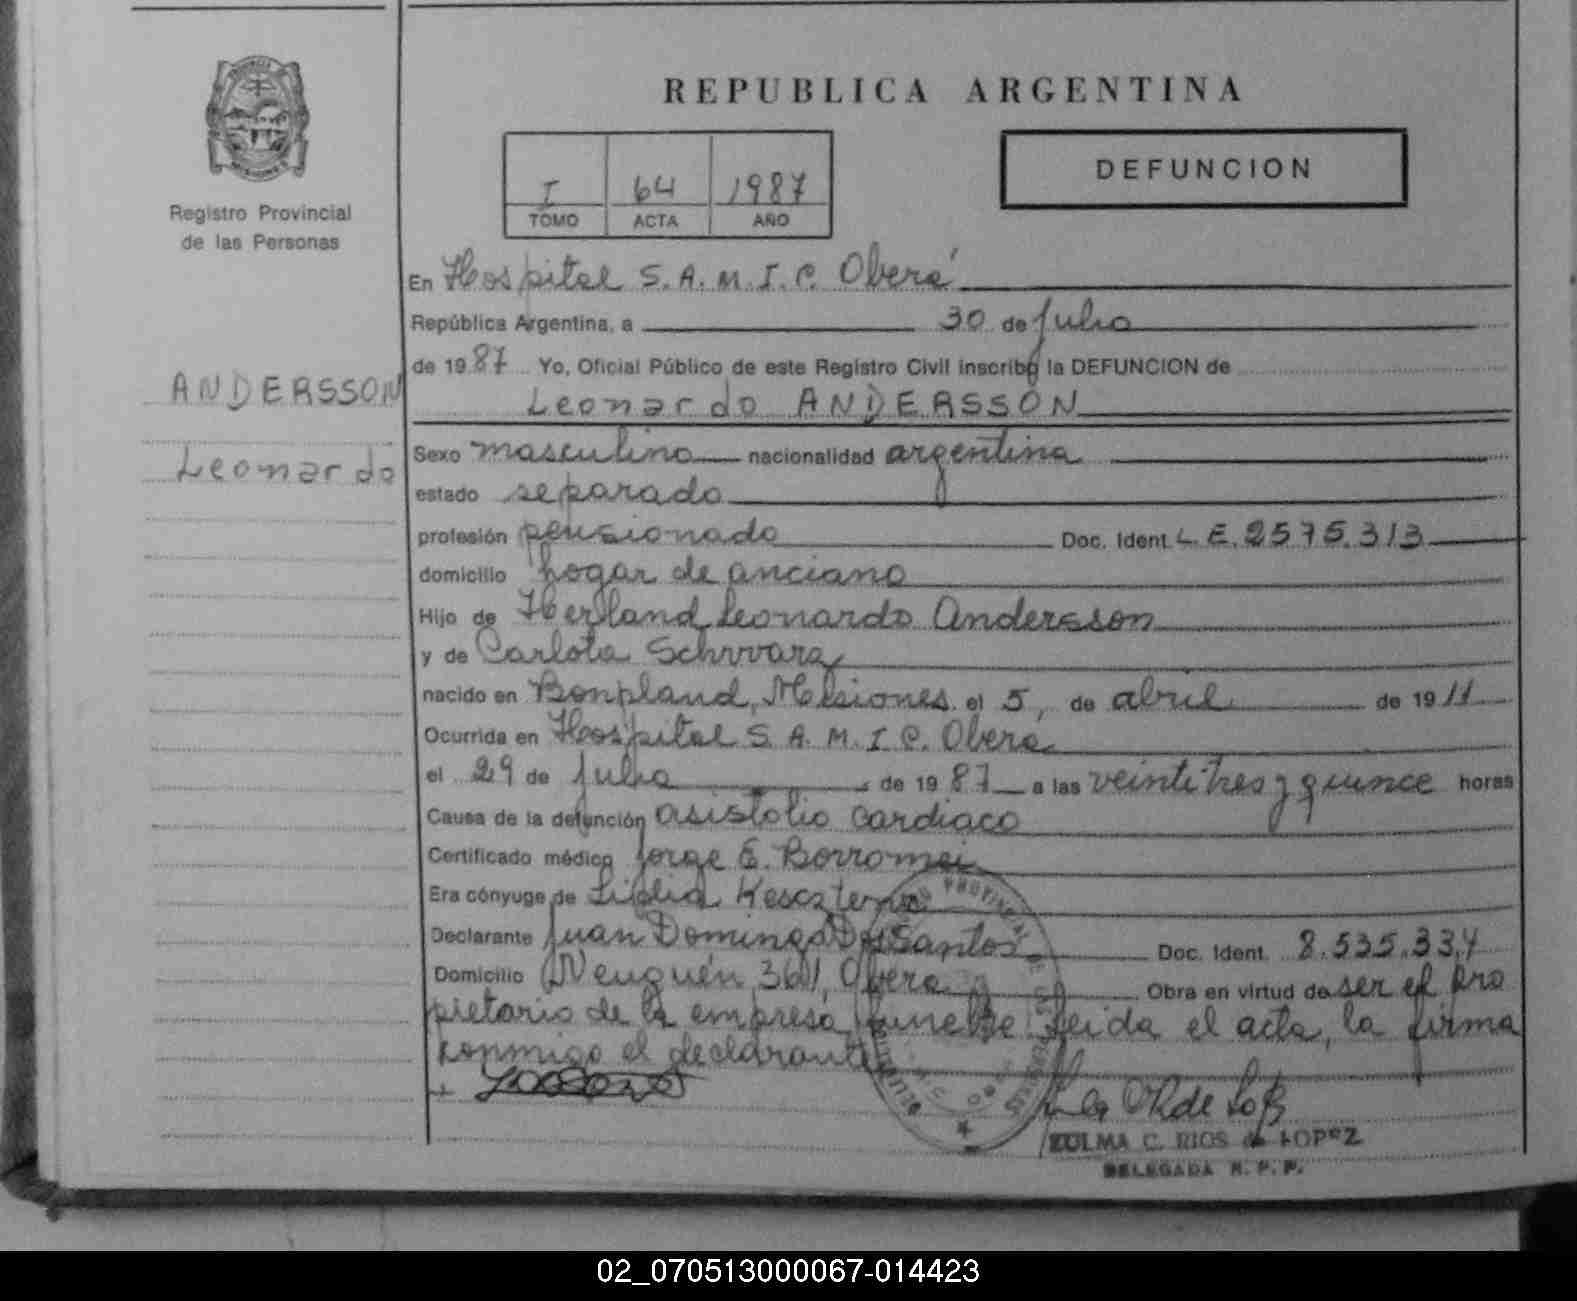 REPUBLICA ARGENTINA
I 64 1987
TOMO ACTA AÑO
DEFUNCION
Registro Provincial
de las Personas
ANDERSSON
Leonardo
En Hospital S.A.M.I.C. Oberá
República Argentina, a 30 de julio
de 1987 Yo, Oficial Público de este Registro Civil inscribo la DEFUNCION de
Leonardo ANDERSSON
Sexo masculino nacionalidad argentina
estado separado
profesión pensionado Doc. Ident. L.E. 2575.313
domicilio hogar de anciano
Hijo de Herland Leonardo Andersson
y de Carlota Schvvarz
nacido en Bonpland, Misiones. el 5, de abril de 1911
Ocurrida en Hospital S.A.M.I.C. Oberá
el 29 de julio de 1987 a las veintitres y quince horas
Causa de la defunción asistolio cardiaco
Certificado médico Jorge E. Borromei
Era cónyuge de
Declarante Juan Domingo Dos Santos Doc. Ident. 8.535.334
Domicilio Neuquén 361, Oberá Obra en virtud de ser el pro
pietario de la empresa funebre leida el acta, la firma
conmigo el declarante
ZULMA C. RIOS de LOPEZ
DELEGADA R. P. P.
02_070513000067-014423